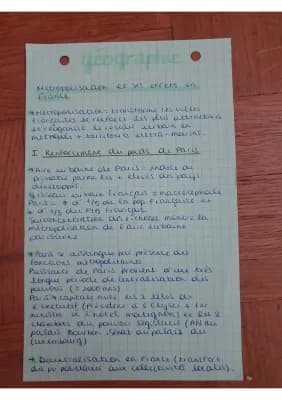 géographie
Métropolisation et ses effets en
France
Métropolisation: transforme les villes
françaises
réorganise le réseau urbain en
métropole + territoire ultra-marins.
I Renforcement du poids de Paris
Aire urbaine de Paris = indice de
primatie parmi les + élevés des pays
développés.
réseau urbain français = macrocéphale
Paris = + d' 1/5 de la pop française et
+ d' 1/3 du PIB français.
Surconcentration des richesses
métropolisation de l'aire urbaine
parisienne
Paris se distingue par présence des
fonctions métropolitaines.
Puissance de Paris provient d'une très
longue période de centralisation des
pouvoirs (= 1000 ans)
Paris = capitale avec les 2 têtes de
l'exécutif (Président à l'Elysée + 1er
ministre à l'hôtel matignon) et les 2
chambres du pouvoir législatif (AN au
palais Bourbon, Sénat au palais du
Luxembourg)
Décentralisation en France (transfert
du pv politique aux collectivités locales).